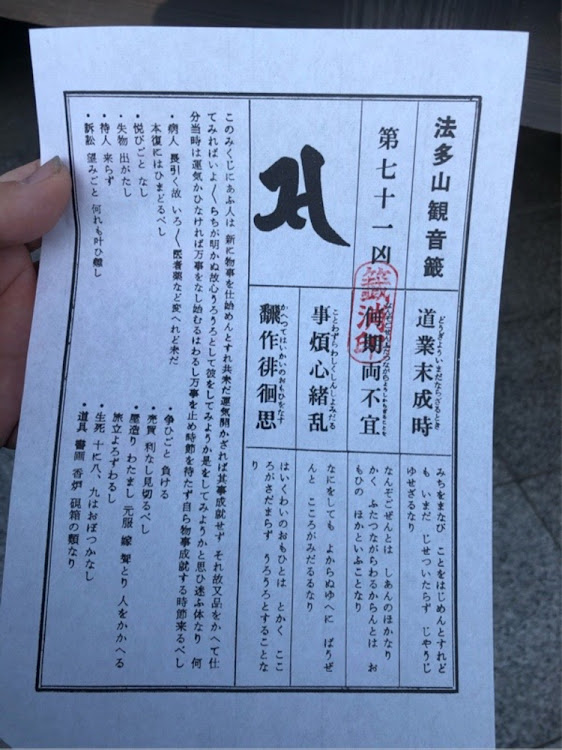 法多山観音籤
第七十一凶
道業末成時
どうぎょういまだならざるとき
何期両不宜
籤満印
事煩心緒乱
ことわずらわしくしんしょみだる
飜作徘徊思
かへつてはいかいのおもひをなす
みちをまなび ことをはじめんとすれど
も いまだ じせついたらず じやうじ
ゆせざるなり
なんぞごぜんとは しあんのほかなり
かく ふたつながらわるからんとは お
もひの ほかといふことなり
なにをしても よからぬゆへに ばうぜ
んと こころがみだるるなり
はいくわいのおもひとは とかく ここ
ろがさだまらず うろうろとすることな
り
このみくじにあふ人は 新に物事を仕始めんとすれ共未だ運気開かざれば其事成就せず それ故又品をかへて仕
てみればいよ〱らちが明かぬ故心うろうろとして彼をしてみようか是をしてみようかと思ひ迷ふ体なり 何
分当時は運気かひなければ万事をなし始むるはわるし万事を止め時節を待たず自ら物事成就する時節来るべし
・病人 長引く故 いろ〱医者薬など変へれど未だ
本復にはひまどるべし
・悦びごと なし
・失物 出がたし
・待人 来らず
・訴訟 望みごと 何れも叶ひ難し
・争ひごと 負ける
・売買 利なし見切るべし
・屋造り わたまし 元服 嫁 聟とり 人をかかへる
旅立よろずわるし
・生死 十に八、九はおぼつかなし
・道具 書画 香炉 硯箱の類なり